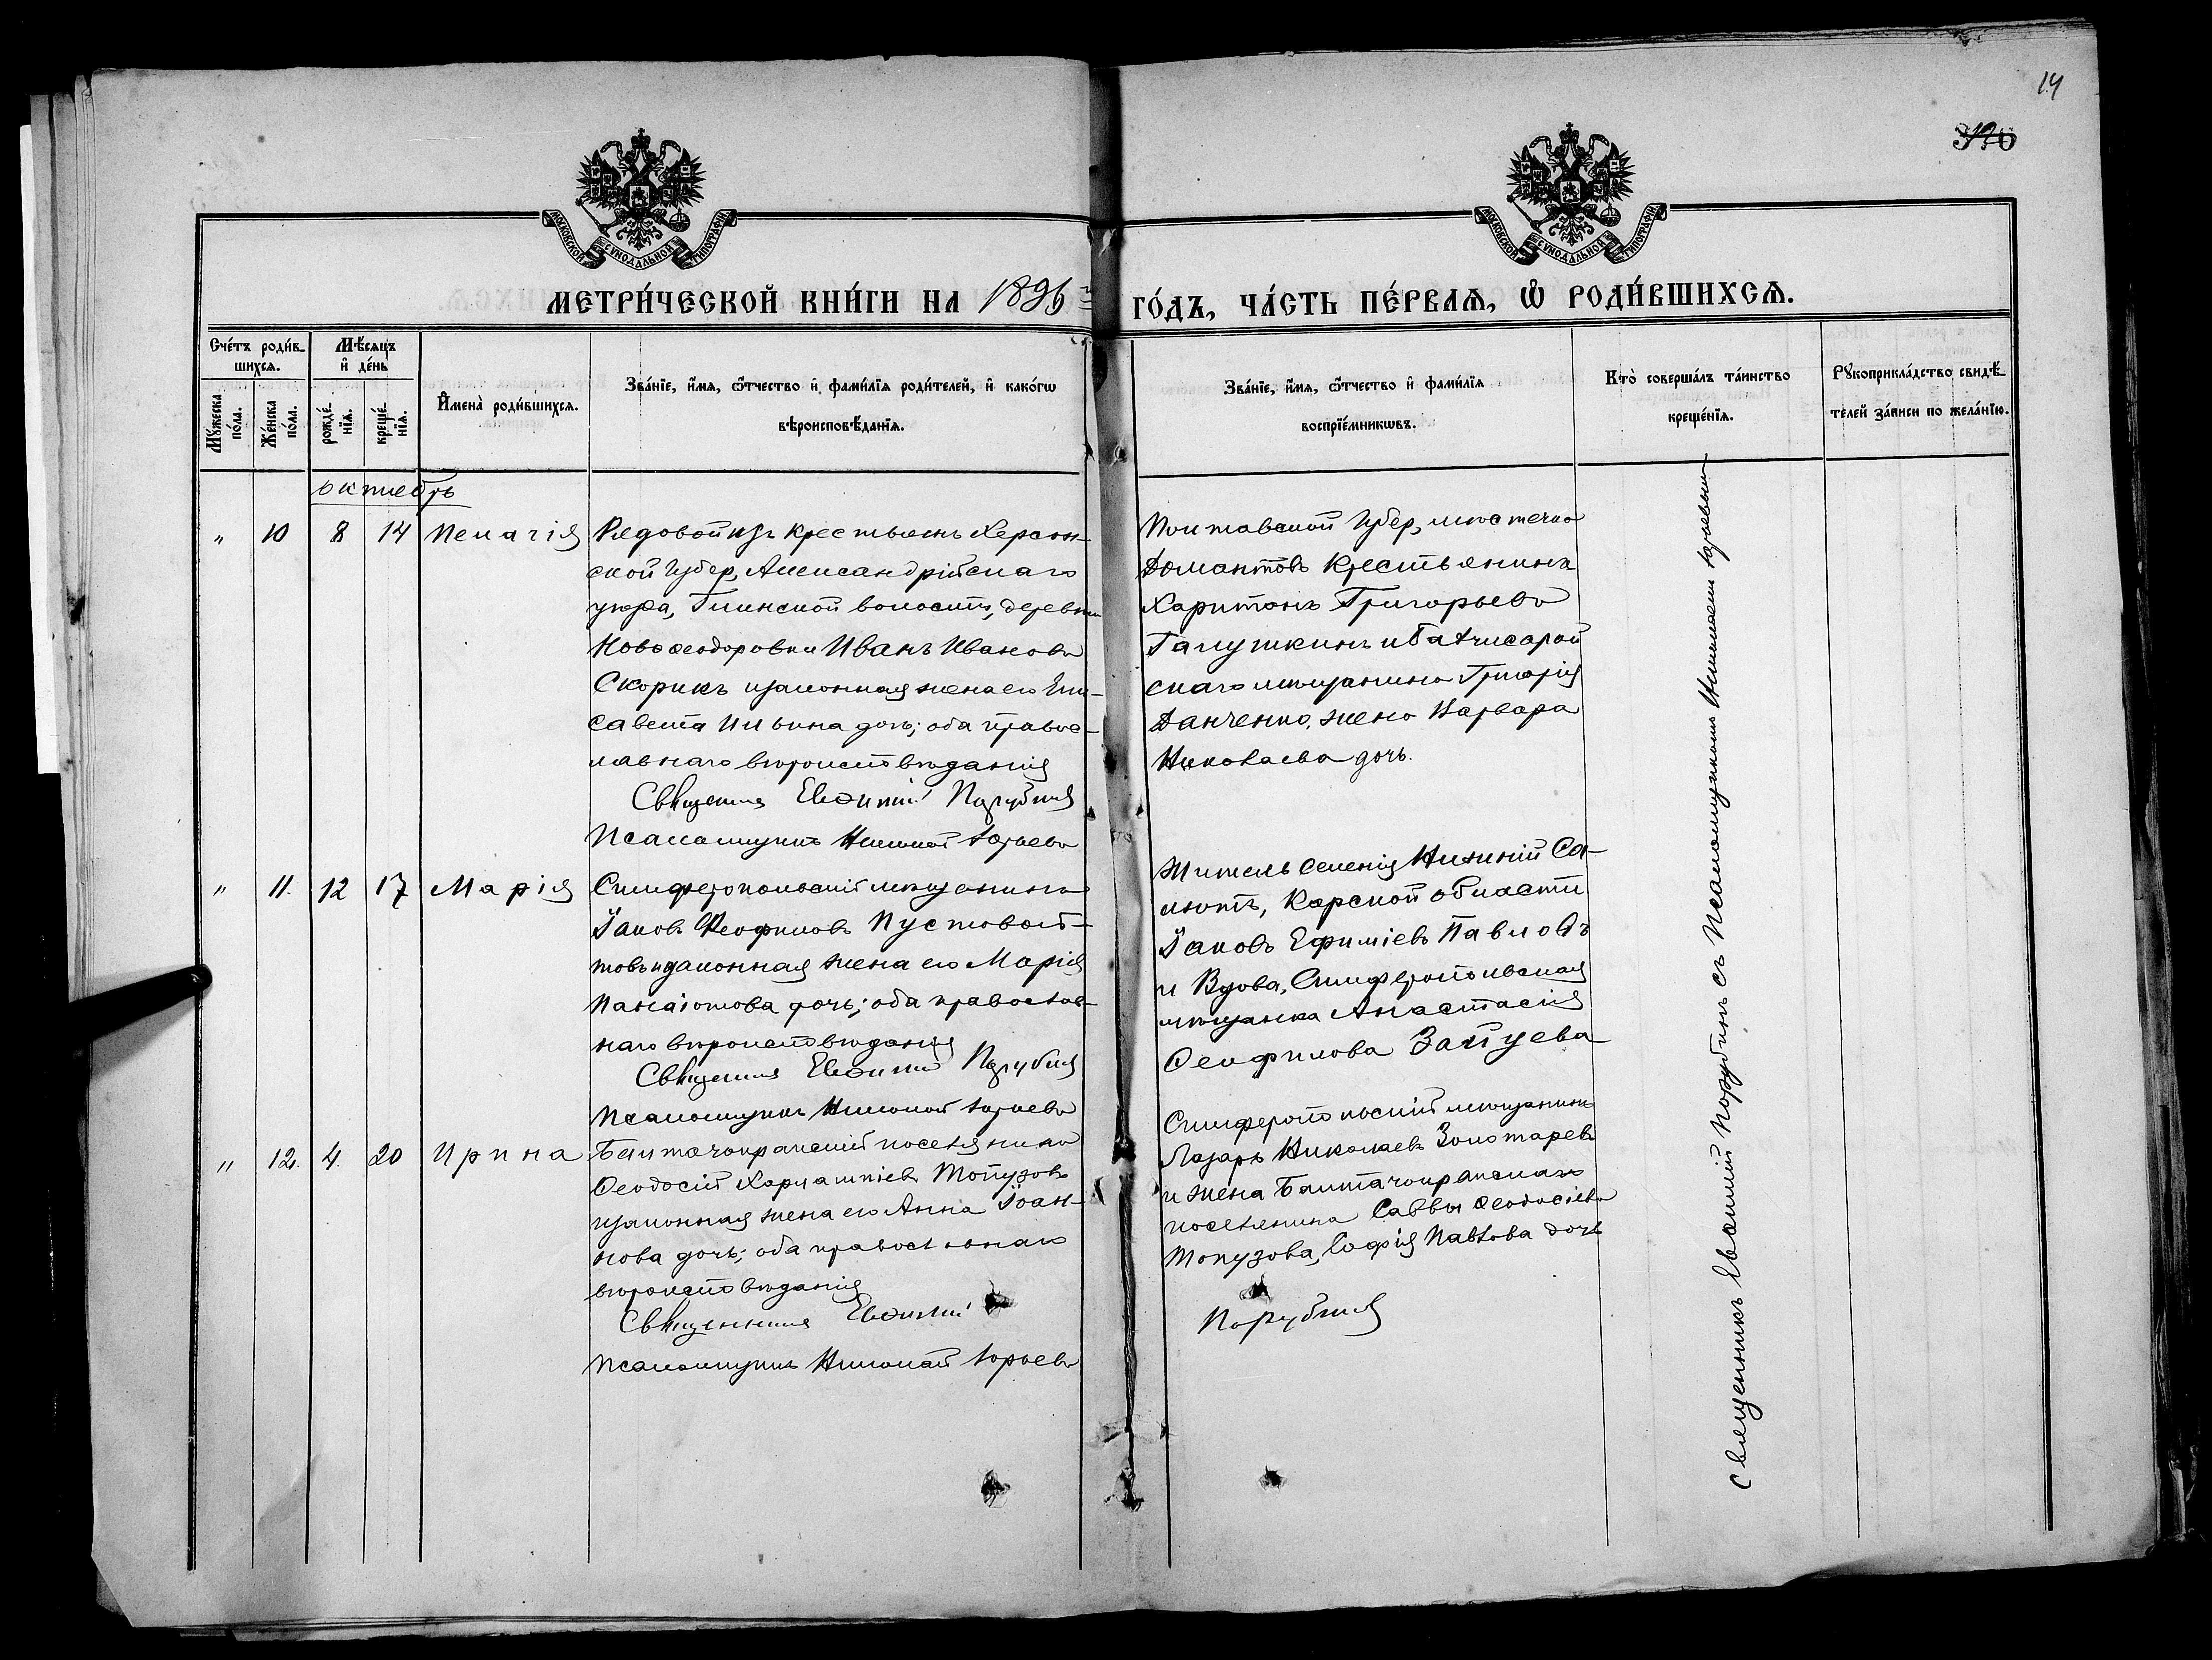 14
МОСКОВСКОЙ СѴНОДАЛЬНОЙ ТИПОГРАФІИ
МОСКОВСКОЙ СѴНОДАЛЬНОЙ ТИПОГРАФІИ
МЕТРИ́ЧЕСКОЙ КНИ́ГИ НА 1896 й ГО́ДЪ, ЧА́СТЬ ПЕ́РВАѦ, Ѡ҆ РОДИ́ВШИХСѦ.
Сче́тъ роди́в-
шихсѧ.
Мꙋ́жеска по́ла.
Же́нска по́ла.
Мѣ́сѧцъ
и҆ де́нь
рожде́-
нїѧ.
креще́-
нїѧ.
И҆мена̀ роди́вшихсѧ.
Зва́нїе, и҆́мѧ, ѻ҆́тчество и҆ фами́лїѧ роди́телей, и҆ како́гѡ
вѣроисповѣ́данїѧ.
Зва́нїе, и҆́мѧ, ѻ҆́тчество и҆ фами́лїѧ
воспрїе́мникѡвъ.
Кто̀ соверша́лъ та́инство
креще́нїѧ.
Рꙋкоприкла́дство свидѣ́-
телей за́писи по жела́нїю.
октябрь
" 10 8 14 Пелагія
Рядовой изъ крестьянъ Херсон-
ской губер, Александрійскаго
уезда, Глинской волости, деревни
Новоѳеодоровки Иванъ Иванова
Скорикъ изаконная жена его Ели-
савета Ильина дочь; оба правос-
лавнаго вѣроисповѣданія
Священник Евѳимій Порубин
Псаломщикъ Николай Юрьевъ
Полтавской губер, местечко
Домантовъ Крестьянинъ
Харитонъ Григорьевъ
Галушкинъ и Бахчисарай
скаго мѣщанина Григорія
Данченко, жена Варвара
Николаева дочь.
" 11. 12 17 Марія
Симферопольскій мѣщанинъ
Іаковъ Ѳеофиловъ Пустовой-
товъ изаконная жена его Марія
Панаіотова дочь; оба православ-
наго вѣроисповѣданія
Священник Евѳимій Порубин
Псаломщикъ Николай Юрьевъ
Житель селенія Нижній Са-
мютъ, Карской области
Іаковъ Ефиміевъ Павловъ
и Вдова, Симферопольская
мѣщанка Анастасія
Ѳеофилова Зайцева
" 12. 4. 20 Ирина
Балтачокракскій поселянинъ
Ѳеодосій Харлампіевъ Топузовъ
изаконная жена его Анна Іоан-
нова дочь; оба православнаго
вѣроисповѣданія
Священник Евѳимій
Псаломщикъ Николай Юрьевъ
Симферопольскій мѣщанинъ
Лазарь Николаевъ Золотаревъ
и жена Балтачокракскаго
поселянина Саввы Ѳеодосіева
Топузова, Софія Павлова дочь
Порубин
Священникъ Евѳимій Порубинъ съ Псаломщикомъ Николаемъ Юрьевымъ